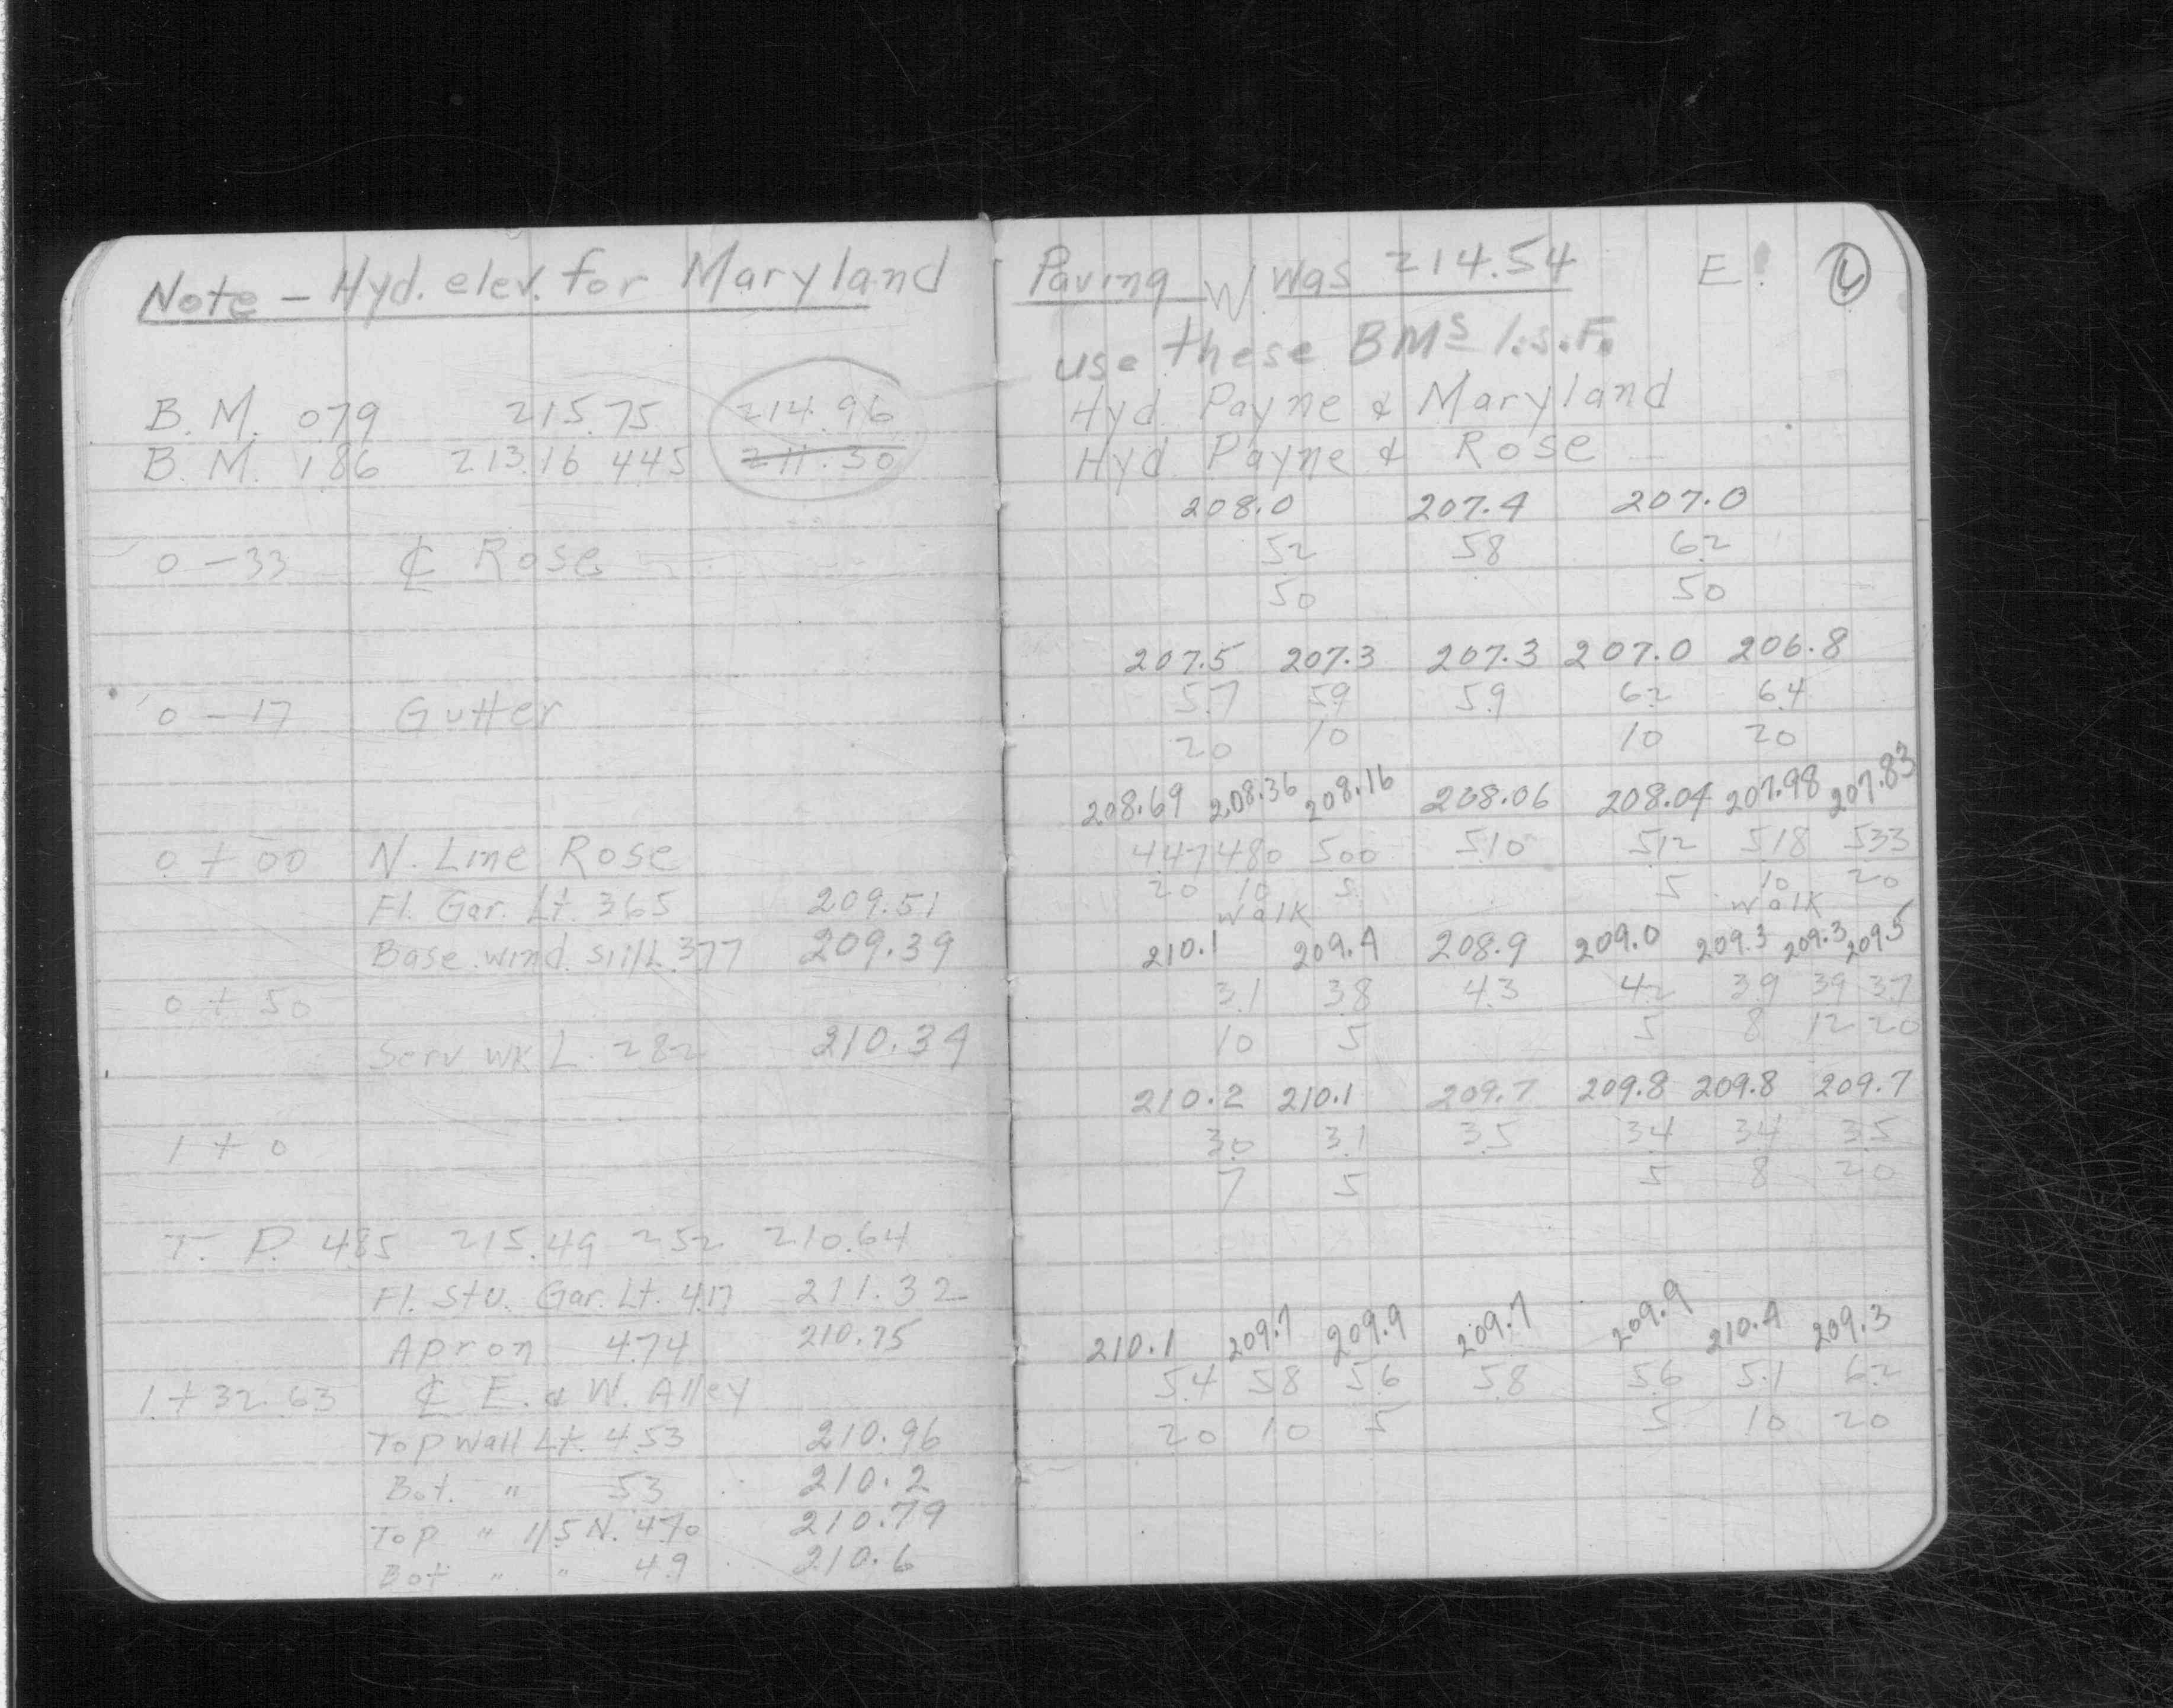 Note - Hyd. elev. for Maryland Paving W was 214.54 E
use these BMs 1.s.F.
B.M. 079 215.75 214.96 Hyd. Payne & Maryland
B.M. 186 213.16 445 211.30 Hyd. Payne & Rose
208.0 207.4 207.0
0 - 33 ℄ Rose 52 58 62
50 50
207.5 207.3 207.3 207.0 206.8
0 - 17 Gutter 57 59 59 62 64
20 10 10 20
208.69 208.36 208.16 208.06 208.04 207.98 207.83
0 + 00 N. Line Rose 447 480 500 510 512 518 533
Fl. Gar. Lt. 365 209.51 20 10 5 5 10 20
walk walk
Base wind. sill L. 377 209.39 210.1 209.4 208.9 209.0 209.3 209.3 209.5
0 + 50 31 38 43 42 39 39 37
Serv wk L. 282 210.34 10 5 5 8 12 20
210.2 210.1 209.7 209.8 209.8 209.7
1 + 0 30 31 35 34 34 35
7 5 5 8 20
T. P. 485 215.49 252 210.64
Fl. Stu. Gar. Lt. 417 211.32
Apron 474 210.75 210.1 209.7 209.9 209.7 209.9 210.4 209.3
1 + 32.63 ℄ E. & W. Alley 54 58 56 58 56 51 62
Top Wall Lt. 453 210.96 20 10 5 5 10 20
Bot. " 53 210.2
Top " 115 N. 470 210.79
Bot " " 49 210.6